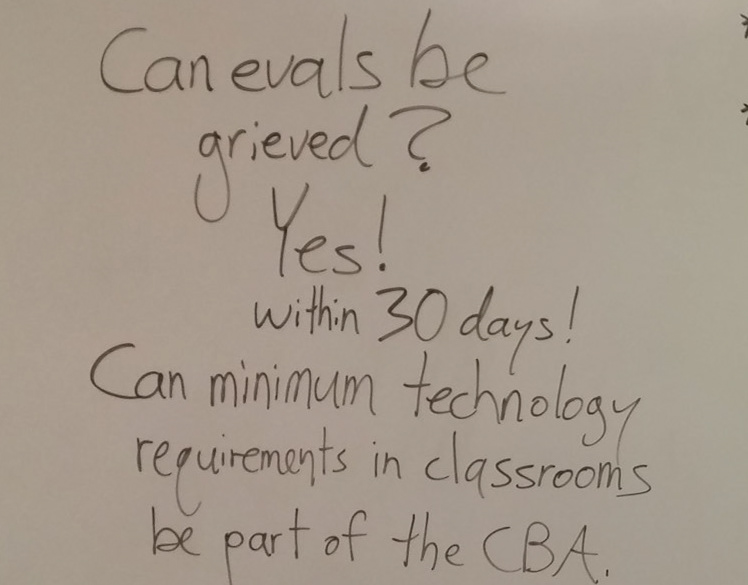 Can evals be
grieved?
Yes!
within 30 days!
Can minimum technology
requirements in classrooms
be part of the CBA.